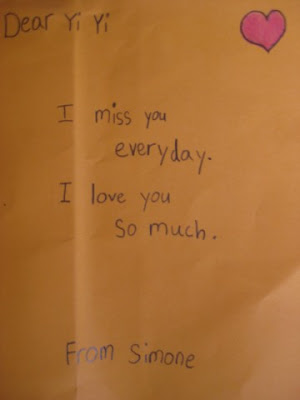 Dear Yi Yi
I miss you
everyday.
I love you
So much.
From Simone